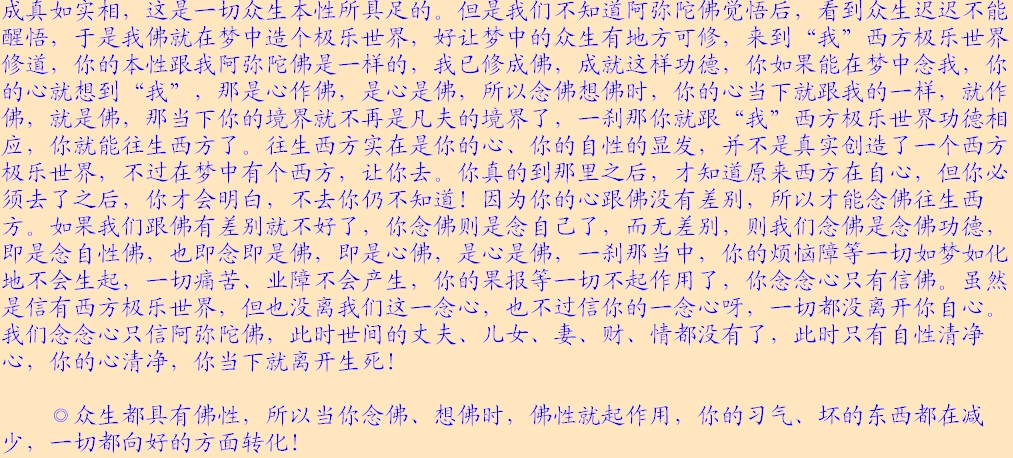 成真如实相，这是一切众生本性所具足的。但是我们不知道阿弥陀佛觉悟后，看到众生迟迟不能
醒悟，于是我佛就在梦中造个极乐世界，好让梦中的众生有地方可修，来到“我”西方极乐世界
修道，你的本性跟我阿弥陀佛是一样的，我已修成佛，成就这样功德，你如果能在梦中念我，你
的心就想到“我”，那是心作佛，是心是佛，所以念佛想佛时，你的心当下就跟我的一样，就作
佛，就是佛，那当下你的境界就不再是凡夫的境界了，一刹那你就跟“我”西方极乐世界功德相
应，你就能往生西方了。往生西方实在是你的心、你的自性的显发，并不是真实创造了一个西方
极乐世界，不过在梦中有个西方，让你去。你真的到那里之后，才知道原来西方在自心，但你必
须去了之后，你才会明白，不去你仍不知道！因为你的心跟佛没有差别，所以才能念佛往生西
方。如果我们跟佛有差别就不好了，你念佛则是念自己了，而无差别，则我们念佛是念佛功德，
即是念自性佛，也即念即是佛，即是心佛，是心是佛，一刹那当中，你的烦恼障等一切如梦如化
地不会生起，一切痛苦、业障不会产生，你的果报等一切不起作用了，你念念心只有信佛。虽然
是信有西方极乐世界，但也没离我们这一念心，也不过信你的一念心呀，一切都没离开你自心。
我们念念心只信阿弥陀佛，此时世间的丈夫、儿女、妻、财、情都没有了，此时只有自性清净
心，你的心清净，你当下就离开生死！
◎众生都具有佛性，所以当你念佛、想佛时，佛性就起作用，你的习气、坏的东西都在减
少，一切都向好的方面转化！